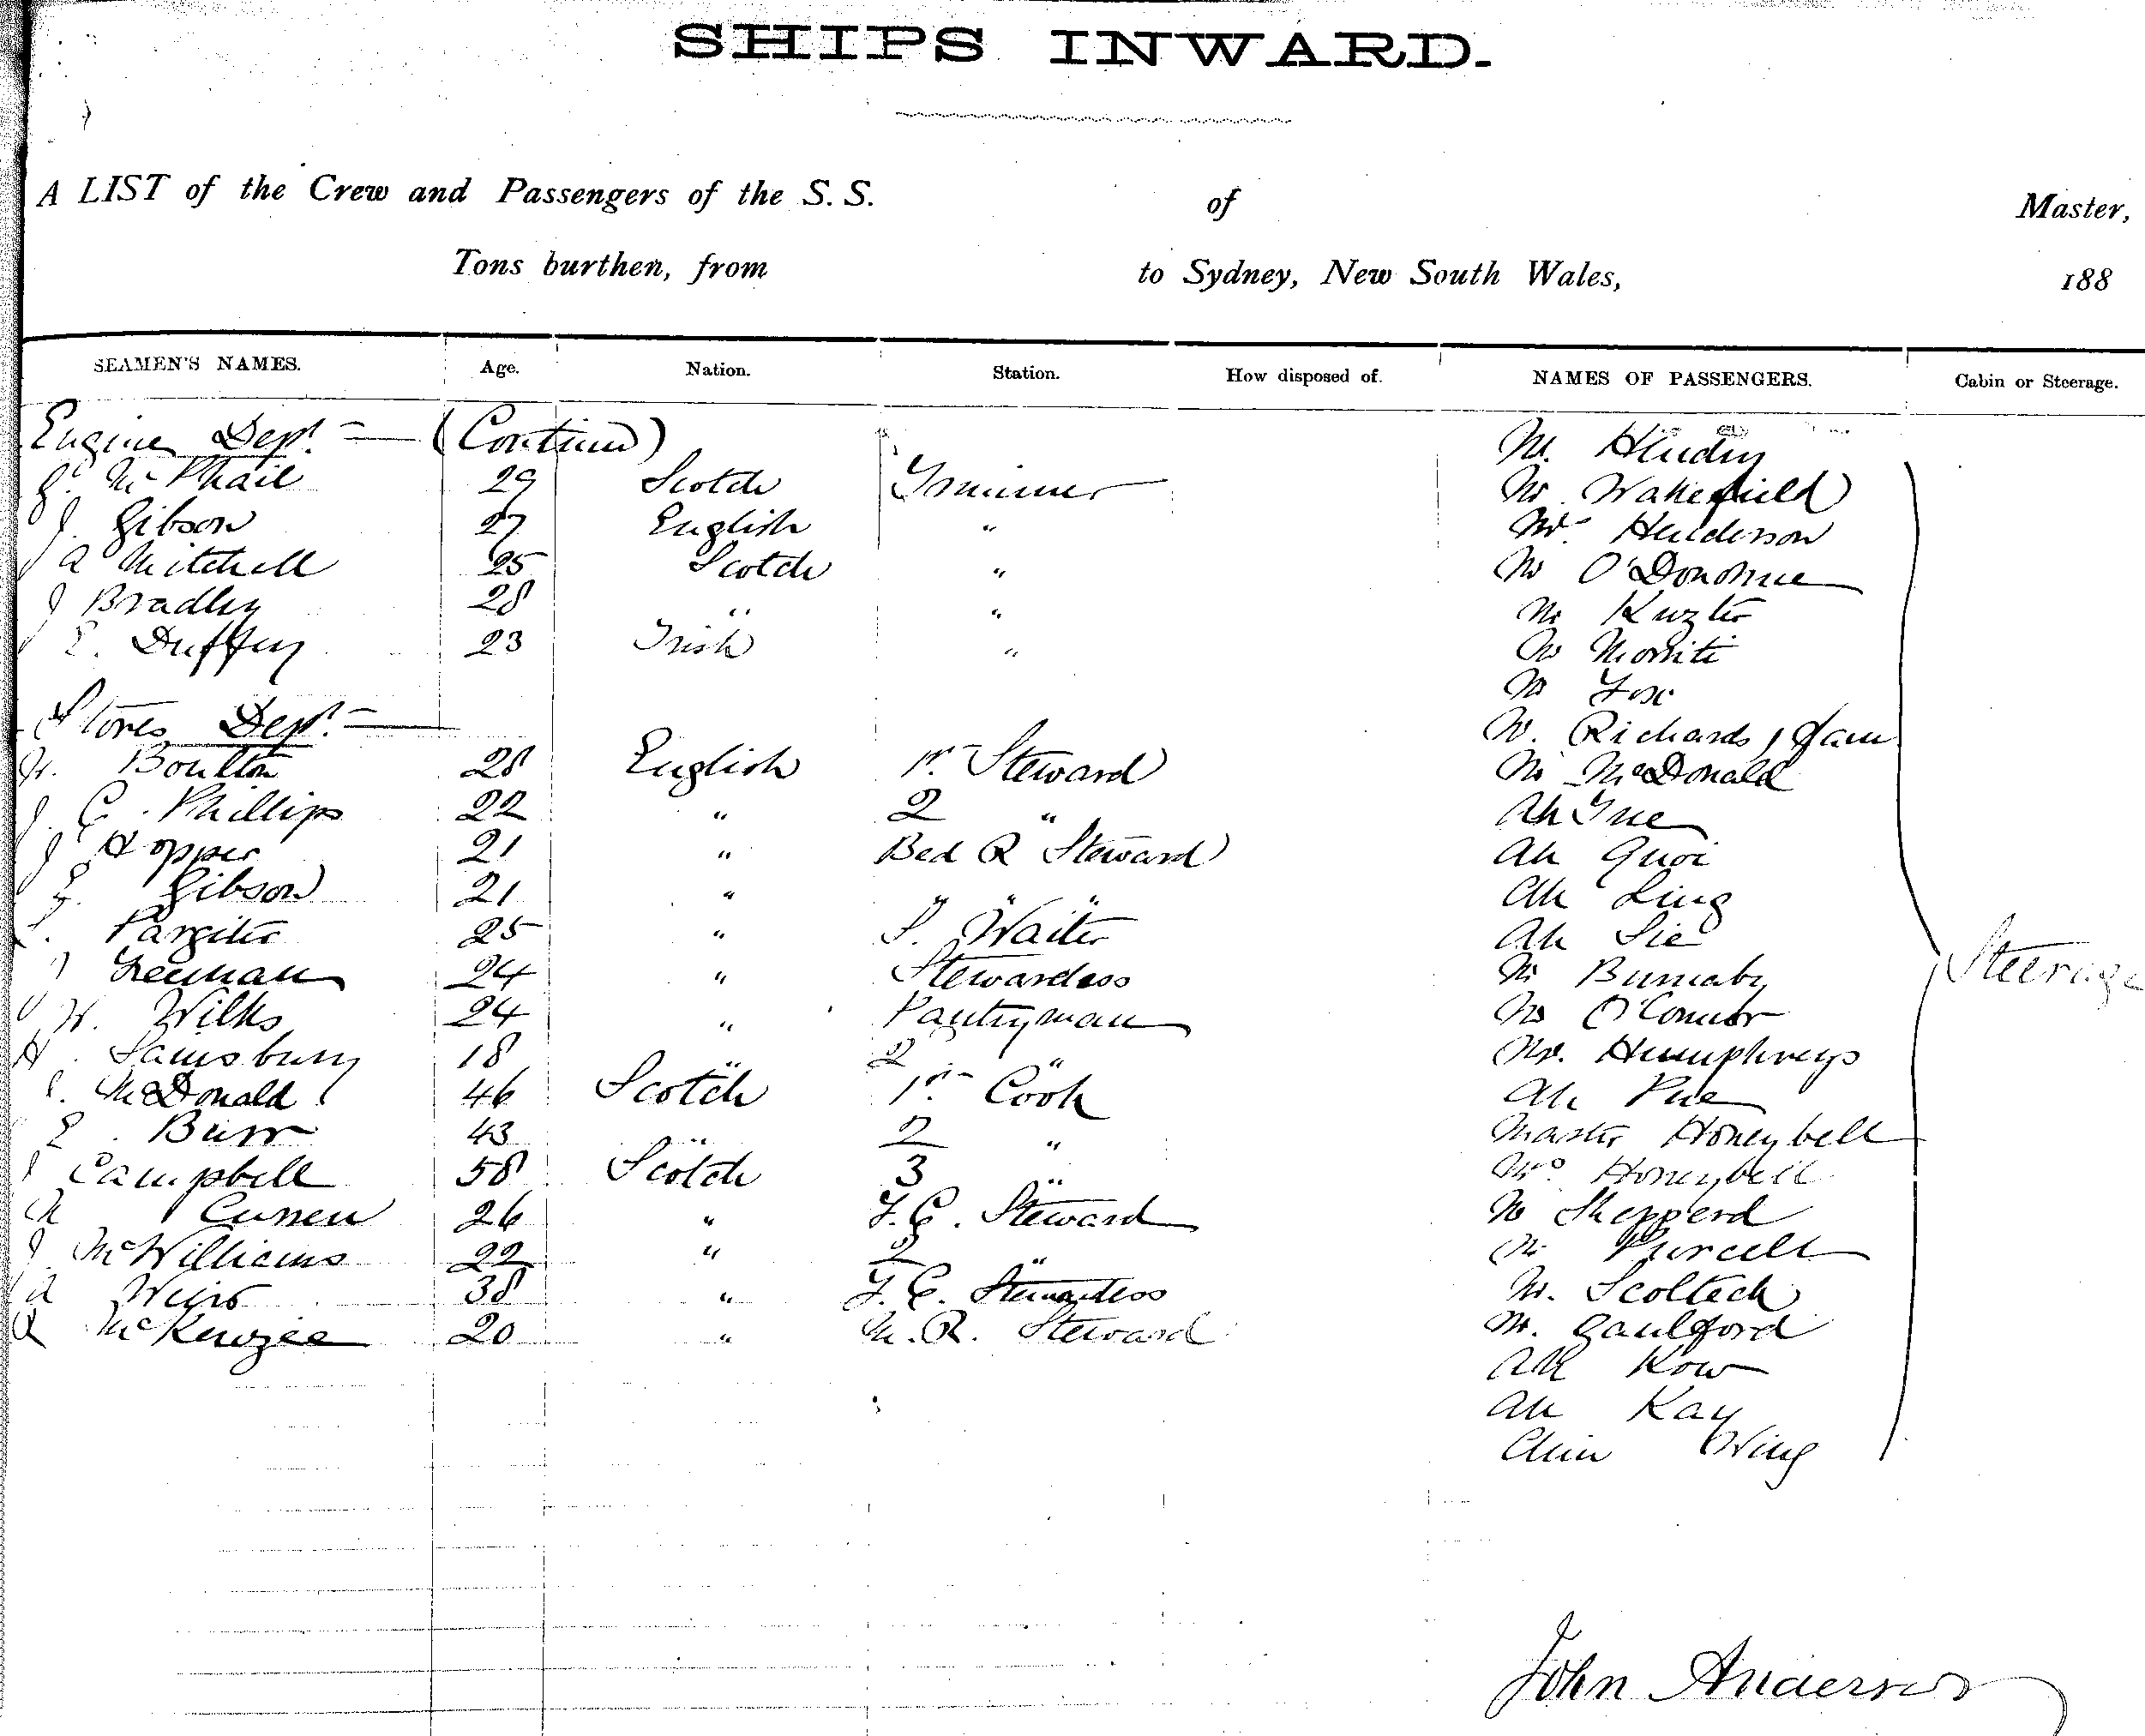 SHIPS INWARD.
A LIST of the Crew and Passengers of the S. S. of Master,
Tons burthen, from to Sydney, New South Wales, 188
SEAMEN'S NAMES. Age. Nation. Station. How disposed of. NAMES OF PASSENGERS. Cabin or Steerage.
Engine Dept. — (Continu) Mr.
Mc Phail 29 Scotch Trimmer Mr. Wakefield
J. Gibson 27 English " Mr. Henderson
A Mitchell 25 Scotch " Mr O'Donohue
J Bradley 28 " " Mr
E. Duffy 23 Irish " Mr
Mr Fox
Stores Dept. — Mr. Richards & fam
Boulton 28 English 1st Steward Mr McDonald
J. C. Phillips 22 " 2 " Ah
J Hopper 21 " Bed R Steward Ah Quoi
Gibson 21 " " " Ah Ling
Pargiter 25 " S. Waiter Ah Sie
Leeman 24 " Stewardess Mr Burnaby Steerage
W. Wilks 24 " Pantryman Mr O'Connor
H. Sainsbury 18 " 2 " Mr. Humphreys
McDonald 46 Scotch 1st Cook Ah Pue
E. Burr 43 " 2 " Master Honeybell
Campbell 58 Scotch 3 " Mrs Honeybell
Curren 26 " F. C. Steward Mr Shepperd
J McWilliams 22 " 2 " Mr Purcell
A Weir 38 " F. C. Stewardess Mr. Scoltock
McKenzee 20 " M. R. Steward Mr. Gaulford
Ah Kow
Ah Kay
Chin Wing
John Anderson